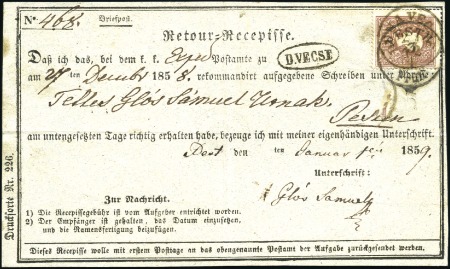 No. 468. Briefpost.
Retour-Recepisse.
Daß ich das, bei dem k. k. Postamte zu D.VECSE
am 27 Decemb 1858. rekommandirt aufgegebene Schreiben unter Adresse:
Glós Sámuel
Pesten
am untengesetzten Tage richtig erhalten habe, bezeuge ich mit meiner eigenhändigen Unterschrift.
Pest den Januar 1859.
Unterschrift:
Glós Samuel
Zur Nachricht.
1) Die Recepissegebühr ist vom Aufgeber entrichtet worden.
2) Der Empfänger ist gehalten, das Datum einzusetzen,
und die Namensfertigung beizufügen.
Dieses Recepisse wolle mit erstem Posttage an das obengenannte Postamt der Aufgabe zurückgesendet werden.
Drucksorte Nr. 226.